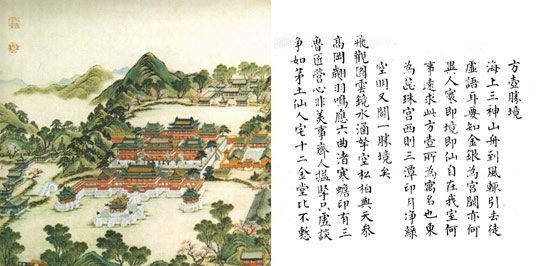 方壺勝境
海上三神山舟到風輒引去徒
虛語耳要知金銀為宮闕亦何
異人寰即境即仙自在我室何
事遠求此方壺所為寓名也東
為蕊珠宮西則三潭印月淨綠
空明又闢一勝境矣
飛觀圖雲鏡水涵拏空松柏與天參
高岡翽羽鳴應六曲渚寒蟾印有三
魯匠營心非美事齊人搤掔只虛談
爭如茅土仙人宅十二金堂比不慙